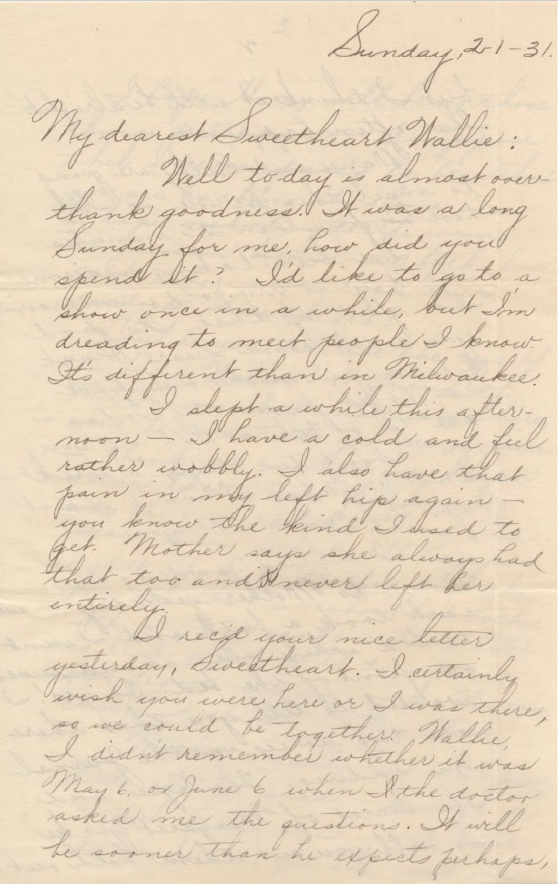 Sunday, 2-1-31.
My dearest Sweetheart Wallie:
Well today is almost over-
thank goodness. It was a long
Sunday for me, how did you
spend it? I'd like to go to a
show once in a while, but I'm
dreading to meet people I know.
It's different than in Milwaukee.
I slept a while this after-
noon — I have a cold and feel
rather wobbly. I also have that
pain in my left hip again —
you know the kind I used to
get. Mother says she always had
that too and never left her
entirely.
I rec'd your nice letter
yesterday, Sweetheart. I certainly
wish you were here or I was there,
so we could be together. Wallie,
I didn't remember whether it was
May 6, or June 6 when the doctor
asked me the questions. It will
be sooner than he expects perhaps,